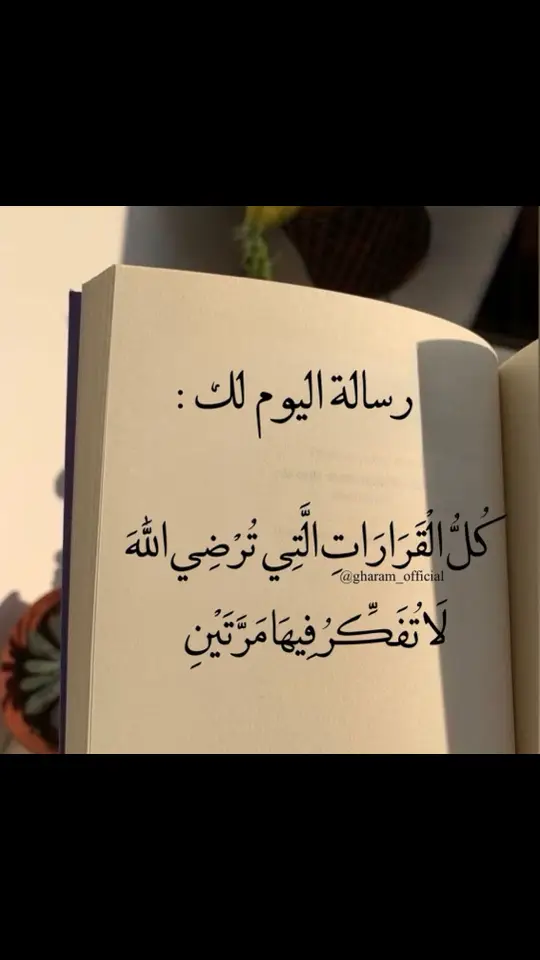 رسالة اليوم لك :
كُلُّ الْقَرَارَاتِ الَّتِي تُرْضِي اللَّهَ
@gharam_official
لَا تُفَكِّرُ فِيهَا مَرَّتَيْنِ